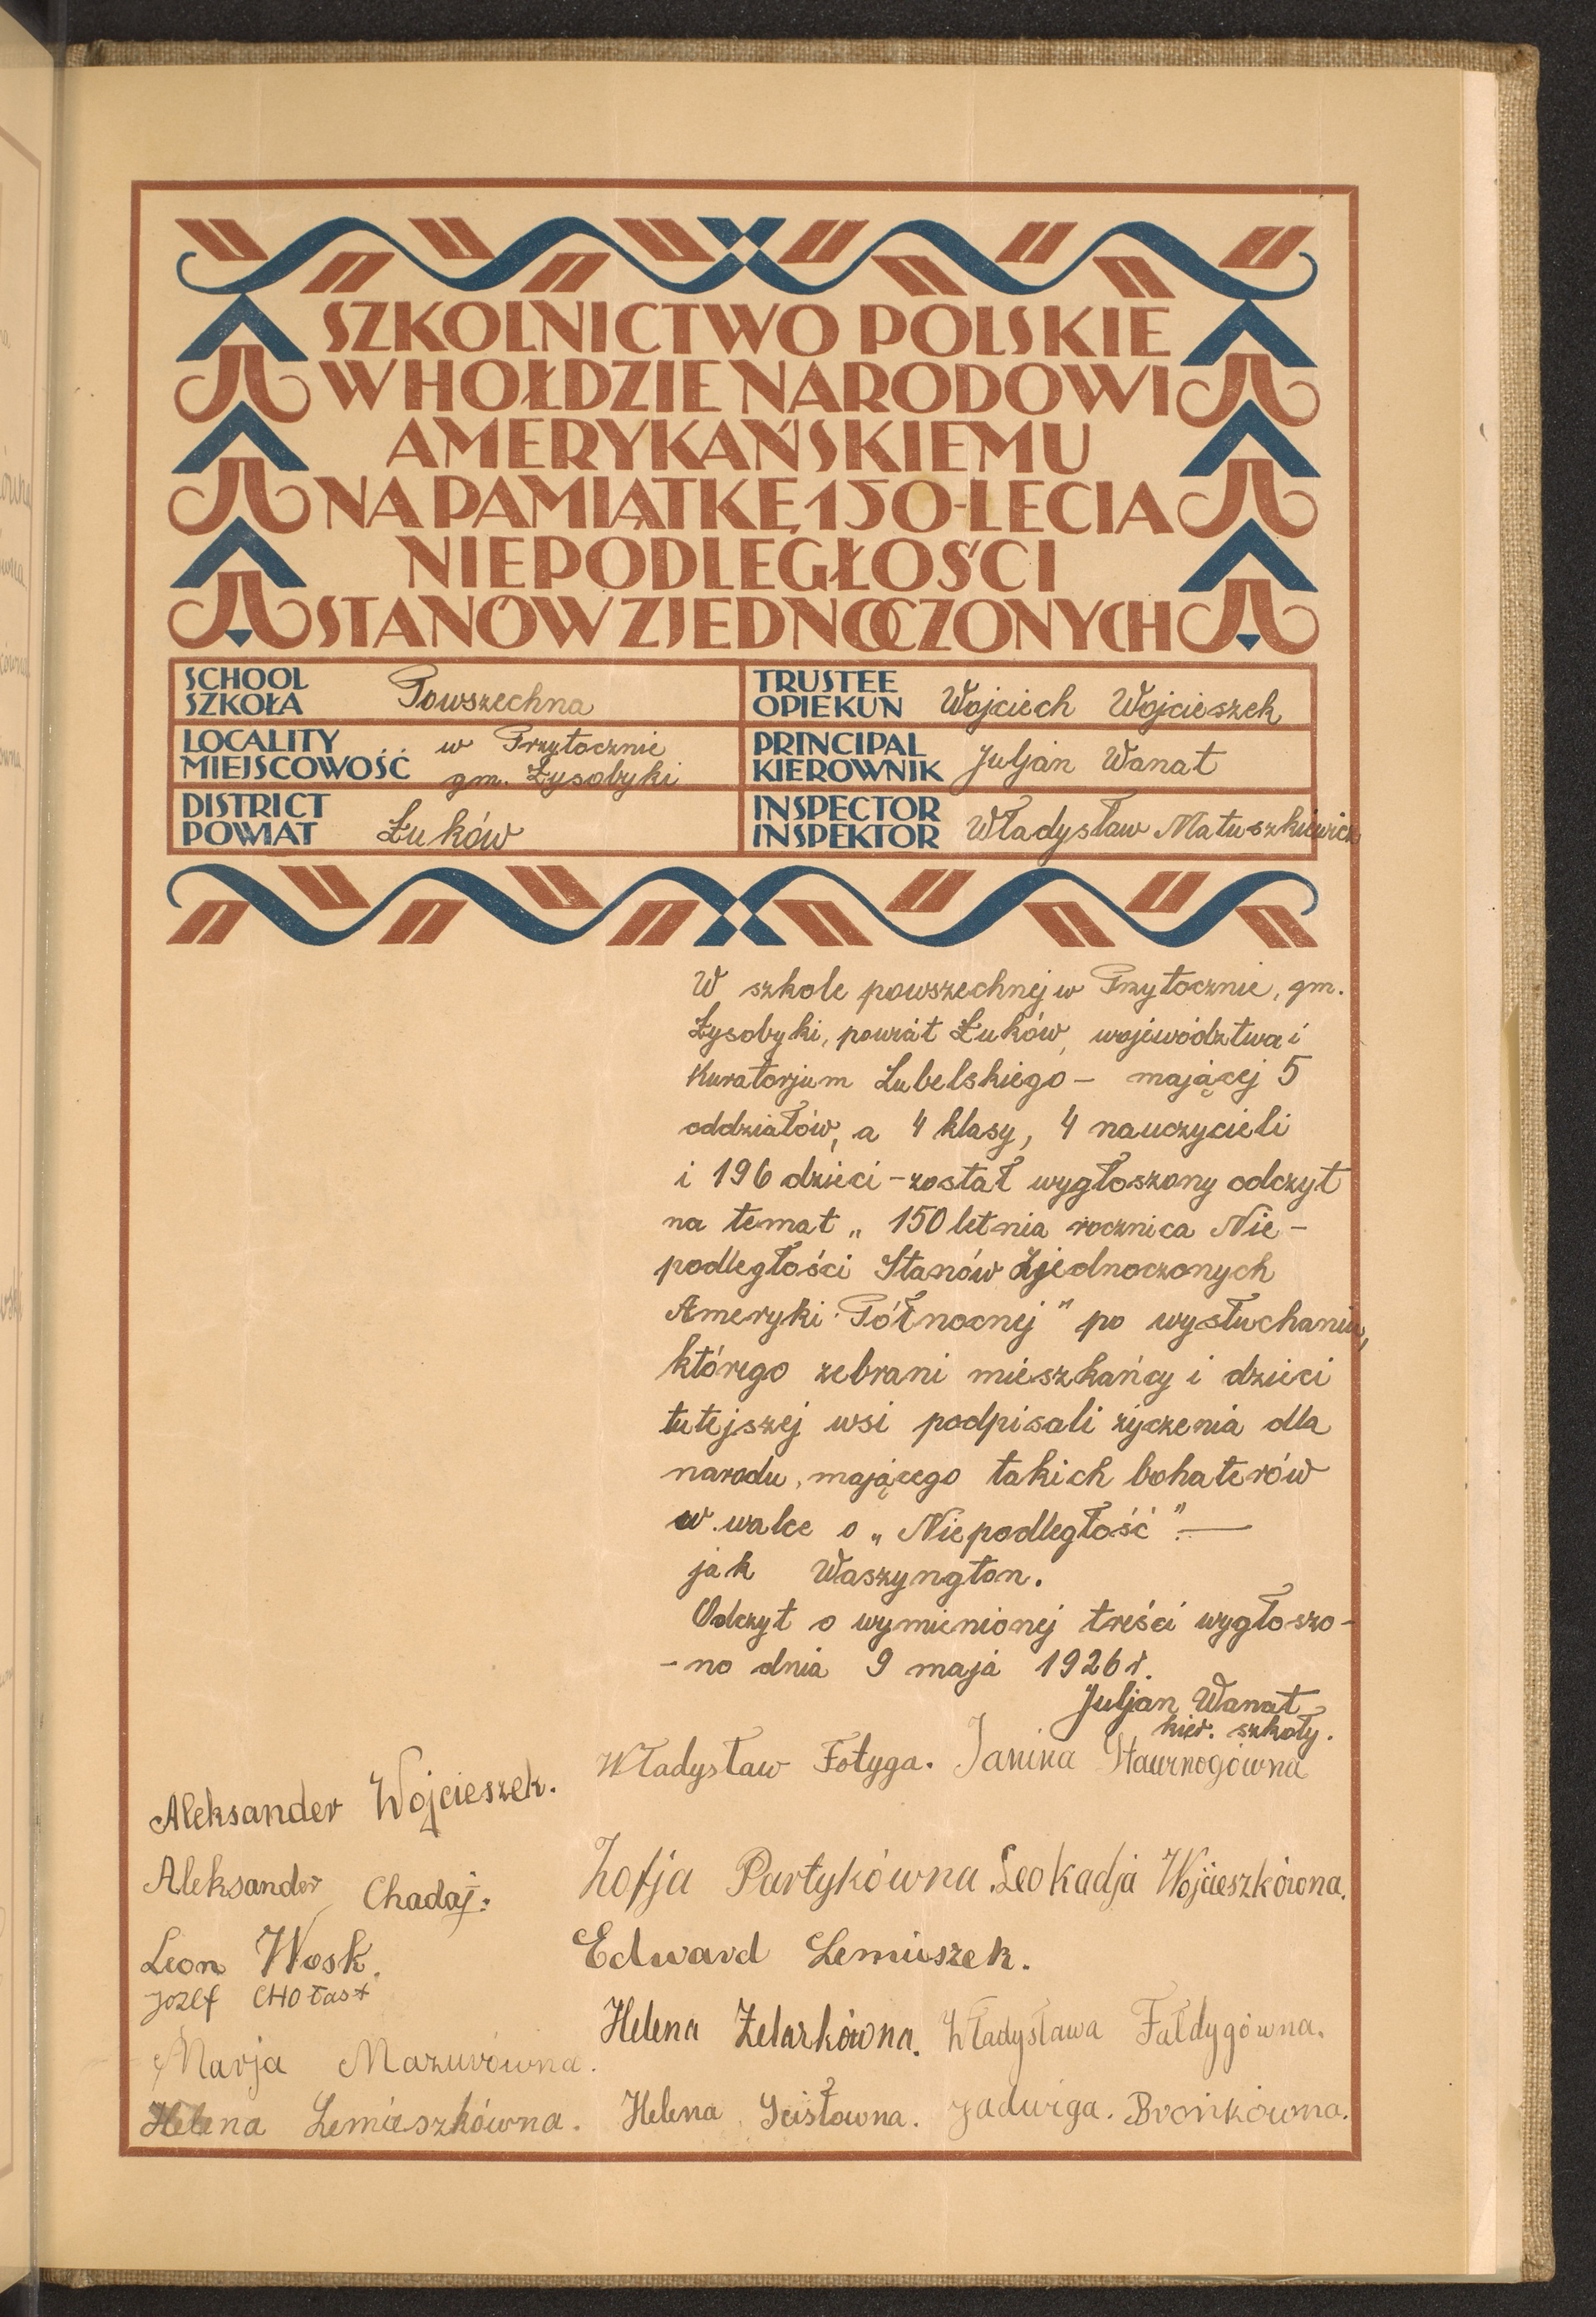 SZKOLNICTWO POLSKIE
W HOŁDZIE NARODOWI
AMERYKAŃSKIEMU
NA PAMIĄTKĘ 150-LECIA
NIEPODLEGŁOŚCI
STANÓW ZJEDNOCZONYCH
SCHOOL
SZKOŁA
Powszechna
TRUSTEE
OPIEKUN
Wojciech Wojcieszek
LOCALITY
MIEJSCOWOŚĆ
w Przytocznie
gm. Łysobyki
PRINCIPAL
KIEROWNIK
Juljan Wanat
DISTRICT
POWIAT
Łuków
INSPECTOR
INSPEKTOR
Władysław Matuszkiewicz
W szkole powszechnej w Przytocznie, gm.
Łysobyki, powiat Łuków, województwa i
Kuratorjum Lubelskiego – mającej 5
oddziałów, a 4 klasy, 4 nauczycieli
i 196 dzieci – został wygłoszony odczyt
na temat „ 150 letnia rocznica Nie-
podległości Stanów Zjednoczonych
Ameryki Północnej" po wysłuchaniu,
którego zebrani mieszkańcy i dzieci
tutejszej wsi podpisali życzenia dla
narodu, mającego takich bohaterów
w walce o „ Niepodległość". —
jak Waszyngton.
Odczyt o wymienionej treści wygłoszo-
-no dnia 9 maja 1926 r.
Juljan Wanat
kier. szkoły.
Władysław Fotyga. Janina
Aleksander Wojcieszek.
Zofja Partykówna. Leokadja Wojcieszkówna.
Aleksander Chadaj.
Edward Lemieszek.
Leon Wosk.
Jozef CHOłast
Helena Żelazkówna. Władysława Fałdygówna.
Marja Mazurówna.
Helena Lemieszkówna. Helena Jadwiga. Bronikówna.